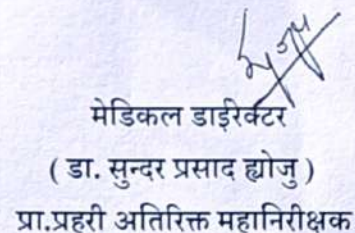 मेडिकल डाईरेक्टर
( डा. सुन्दर प्रसाद ह्योजु )
प्रा.प्रहरी अतिरिक्त महानिरीक्षक